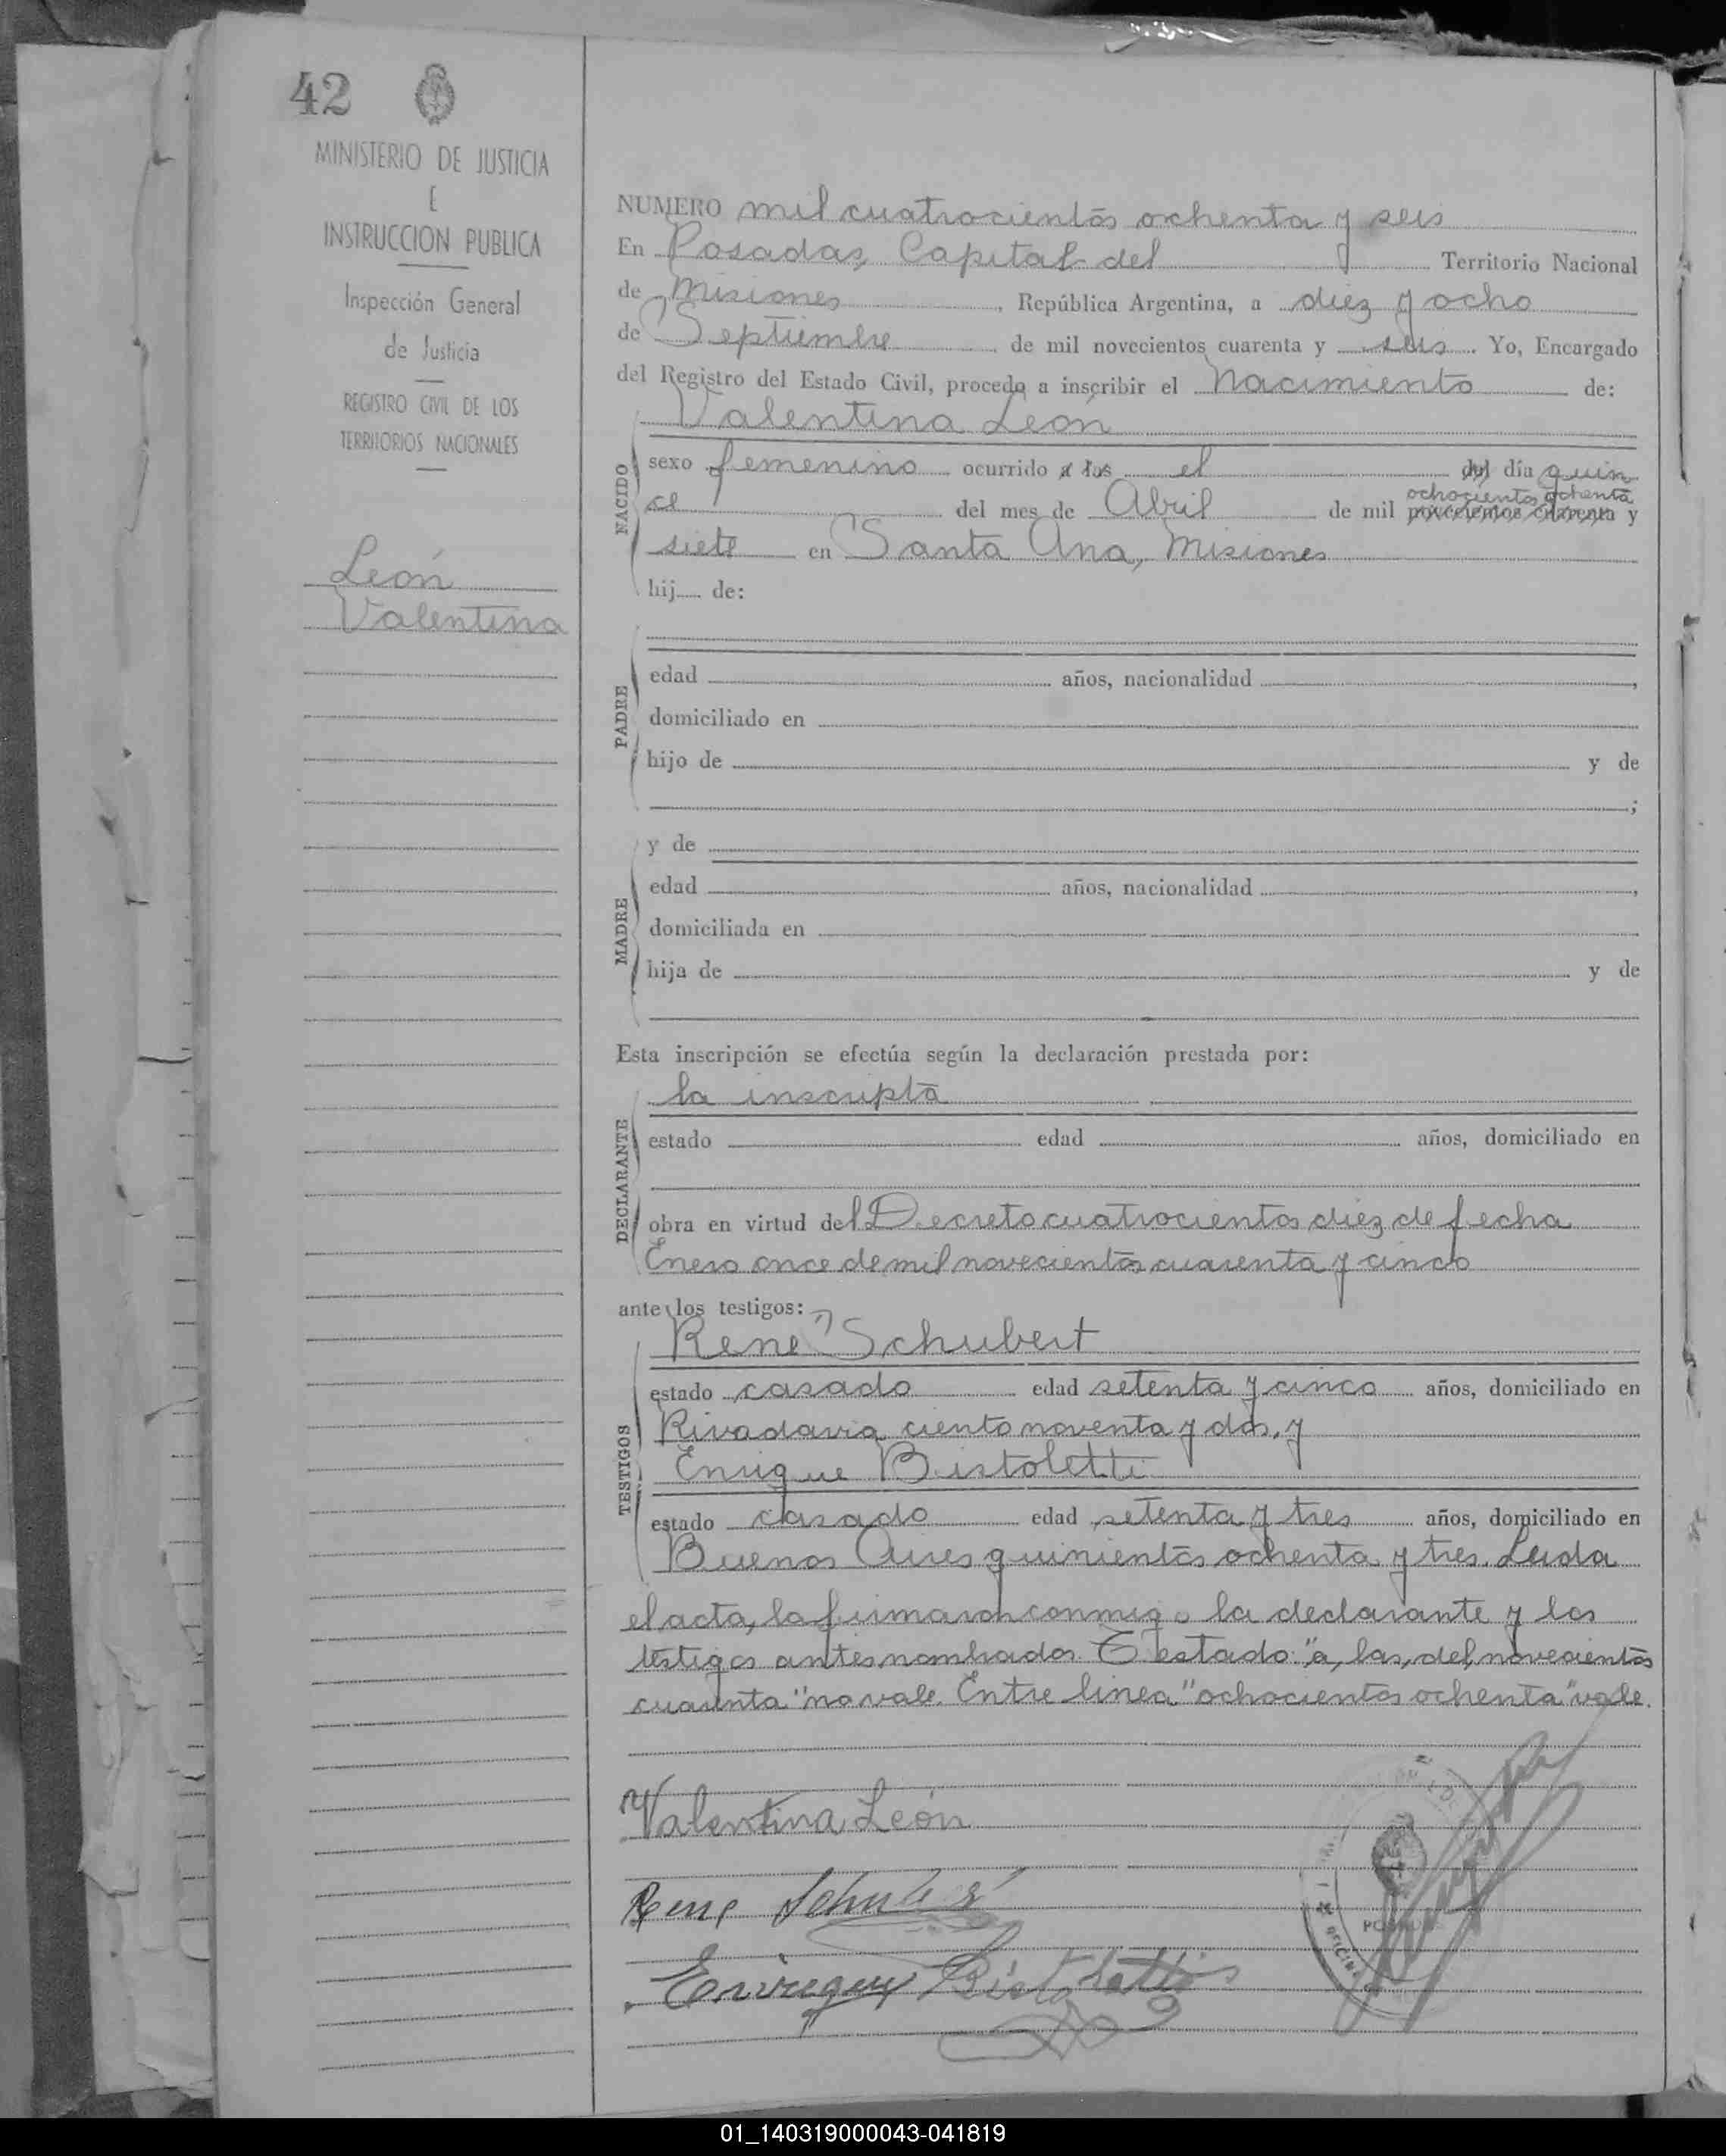 42
MINISTERIO DE JUSTICIA
E
INSTRUCCION PUBLICA
Inspección General
de Justicia
REGISTRO CIVIL DE LOS
TERRITORIOS NACIONALES
León
Valentina
NUMERO mil cuatrocientos ochenta y seis
En Posadas, Capital del Territorio Nacional
de Misiones, República Argentina, a diez y ocho
de Septiembre de mil novecientos cuarenta y seis. Yo, Encargado
del Registro del Estado Civil, procedo a inscribir el Nacimiento de:
Valentina León
NACIDO
sexo femenino ocurrido a las el del día quin
ochocientos ochenta
ce del mes de Abril de mil novecientos cuarenta y
siete en Santa Ana, Misiones
hij de:
PADRE
edad años, nacionalidad ,
domiciliado en
hijo de y de
;
MADRE
y de
edad años, nacionalidad ,
domiciliada en
hija de y de
Esta inscripción se efectúa según la declaración prestada por:
la inscripta
DECLARANTE
estado edad años, domiciliado en
obra en virtud del Decreto cuatrocientos diez de fecha
Enero once de mil novecientos cuarenta y cinco
ante los testigos:
René Schubert
TESTIGOS
estado casado edad setenta y cinco años, domiciliado en
Rivadavia ciento noventa y dos, y
Enrique Bistoletti
estado casado edad setenta y tres años, domiciliado en
Buenos Aires quinientos ochenta y tres. Leida
el acta, la firmaron conmigo la declarante y los
testigos antes nombrados. Testado: "a, las, del, novecientos
cuarenta" no vale. Entre linea "ochocientos ochenta" vale.
Valentina León
Rene
Enrique Bistoletti
01_140319000043-041819